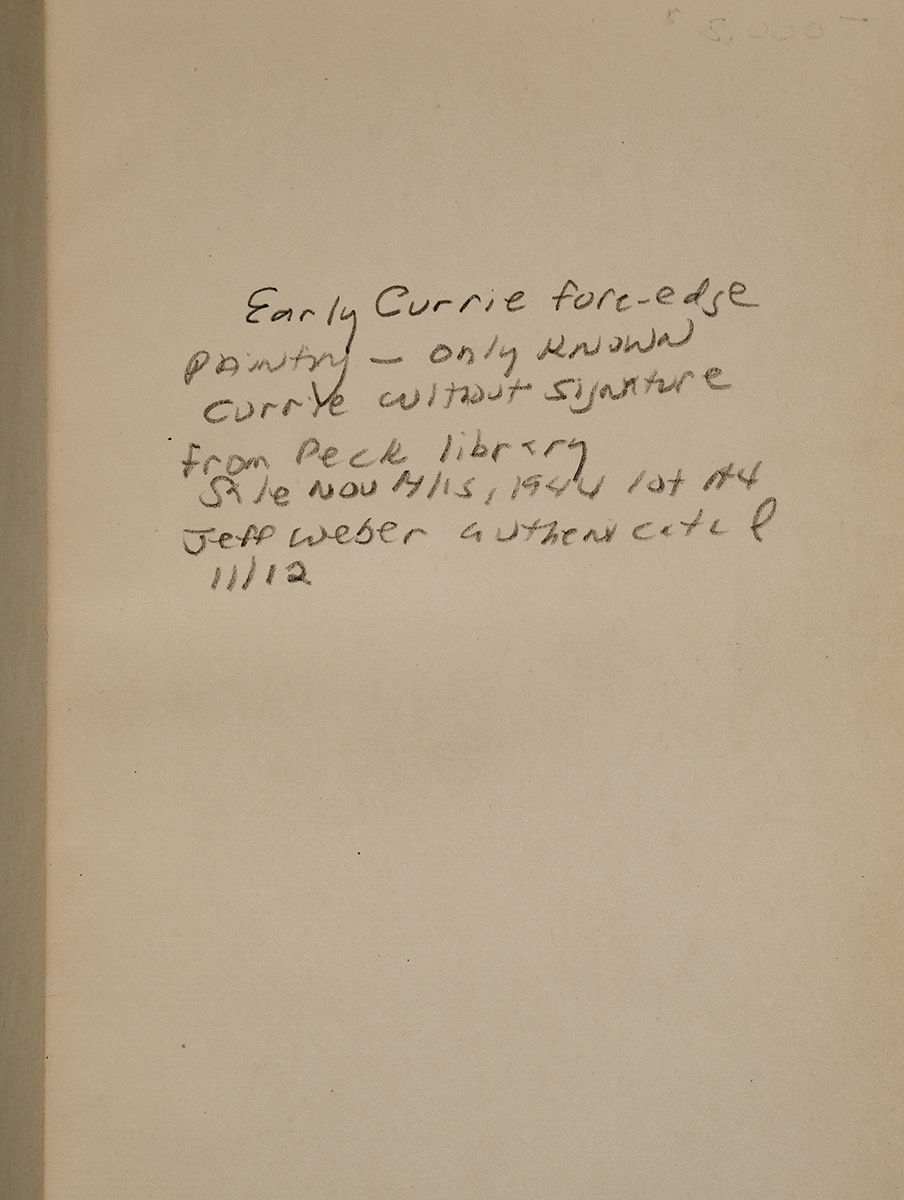 $ 5,000 —
Early Currie fore-edge
Painting — only KNOWN
Currie without Signature
from Peck library
Sale Nov 14/15, 1944 lot
Jeff Weber authenticated
11/12